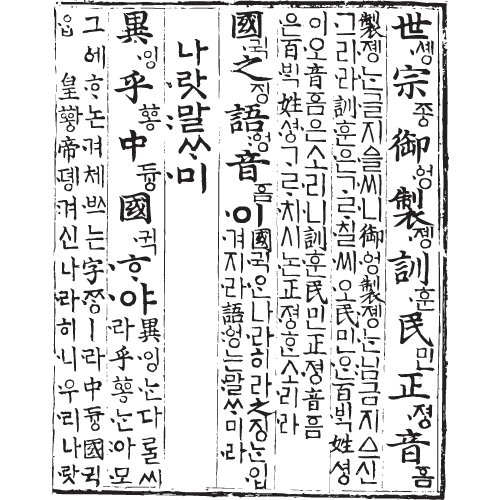 世솅宗조ᇰ御ᅌᅥᆼ製졩訓훈民민正져ᇰ音ᅙᅳᆷ
製졩ᄂᆞᆫ글지ᅀᅳᆯ씨니御ᅌᅥᆼ製졩ᄂᆞᆫ님금지ᅀᅳ신
그리라訓훈은ᄀᆞᄅᆞ칠씨오民민ᄋᆞᆫ百ᄇᆡᆨ姓셔ᇰ
이오音ᅙᅳᆷ은소리니訓훈民민正져ᇰ音ᅙᅳᆷ
은百ᄇᆡᆨ姓셔ᇰᄀᆞᄅᆞ치시논正져ᇰᄒᆞᆫ소리라
國귁之징語ᅌᅥᆼ音ᅙᅳᆷ이
國귁ᄋᆞᆫ나라히라之징ᄂᆞᆫ입
겨지라語ᅌᅥᆼ는말ᄊᆞ미라
나랏말ᄊᆞ미
異잉乎ᅘᅩᆼ中듀ᇰ國귁ᄒᆞ야
異잉ᄂᆞᆫ다ᄅᆞᆯ씨
라乎ᅘᅩᆼᄂᆞᆫ아모
그ᅌᅦᄒᆞ논겨체ᄡᅳ는字ᄍᆞᆼㅣ라中듀ᇰ國귁
ᄋᆞᆫ皇ᅘᅪᇰ帝뎽겨신나라히니우리나랏